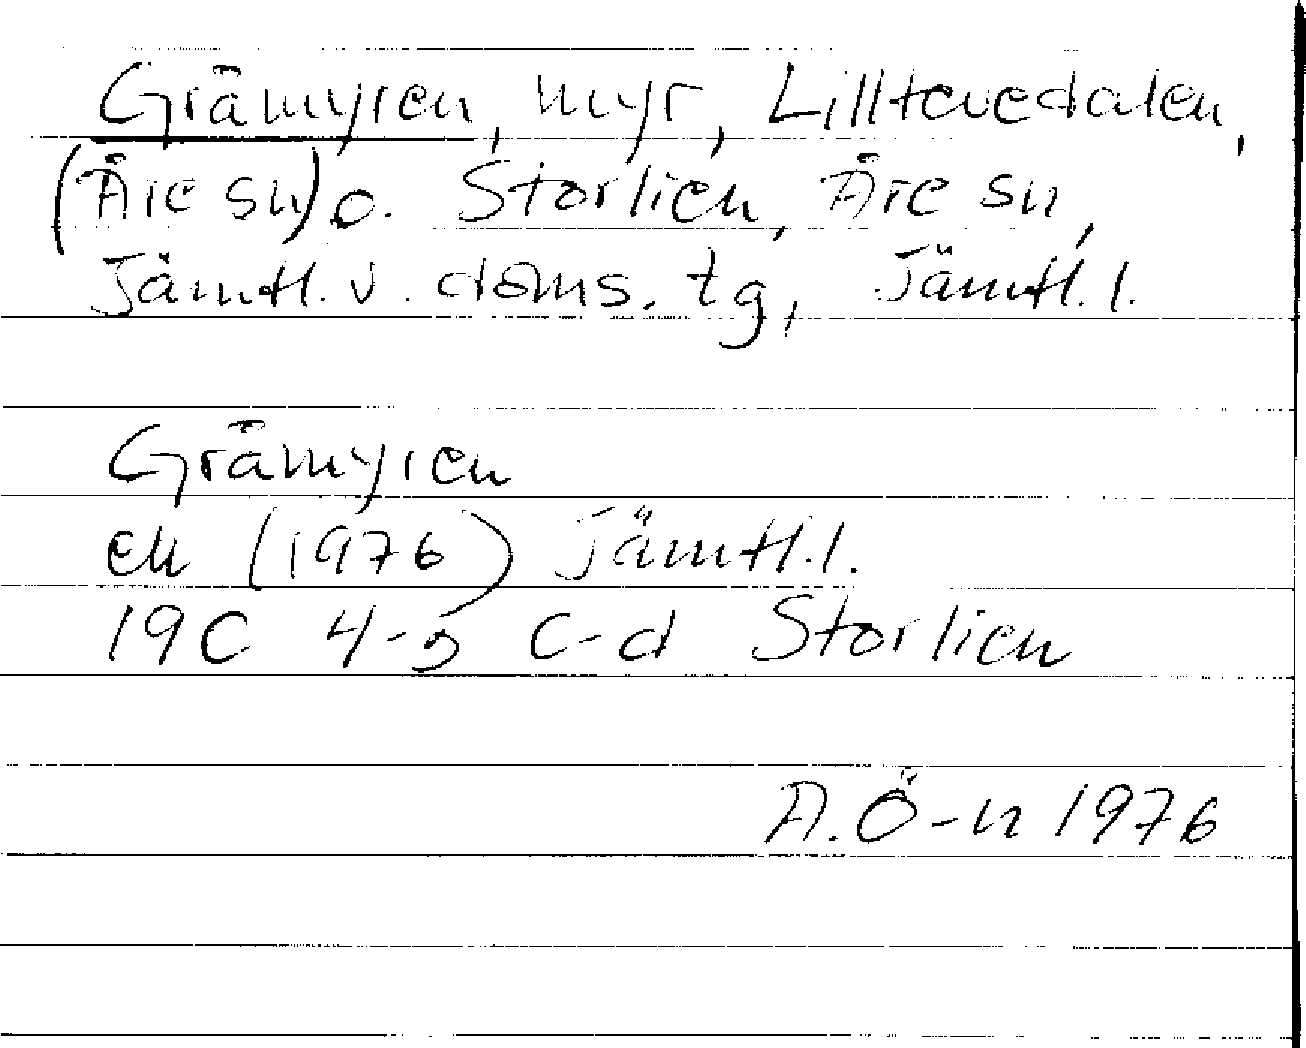 Gråmyren, myr, Lilltevedalen,
(Åre sn) o. Storlien, Åre sn,
Jämtl. v. doms. tg, Jämtl. l.
Gråmyren
ek (1976) Jämtl. l.
19C 4-5 c-d Storlien
A. Ö-n 1976